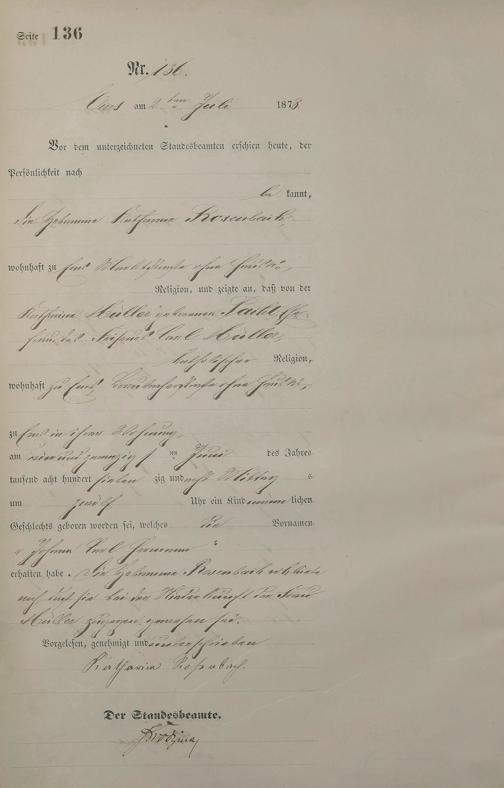 Seite 136
Nr. 136.
Ems am 2ten Juli 1878
Vor dem unterzeichneten Standesbeamten erschien heute, der
Persönlichkeit nach
be kannt,
die Hebamme Katharina Rosenbach,
wohnhaft zu Ems Marktstraße ohne
Religion, und zeigte an, daß von der
Katharina Müller geborenen Ehe-
frau des Carl Müller,
katholischer Religion,
wohnhaft zu Ems, ohne
zu Ems in ihrer Wohnung,
am vierundzwanzigsten Juni des Jahres
tausend acht hundert sieben zig und acht Mittags
um zwölf Uhr ein Kind männlichen
Geschlechts geboren worden sei, welches die Vornamen
" Johann Carl Hermann "
erhalten habe. Die Hebamme Rosenbach erklärte
noch daß sie bei der Niederkunft der Frau
Müller zugegen gewesen sei.
Vorgelesen, genehmigt und unterschrieben
Katharina Rosenbach.
Der Standesbeamte.